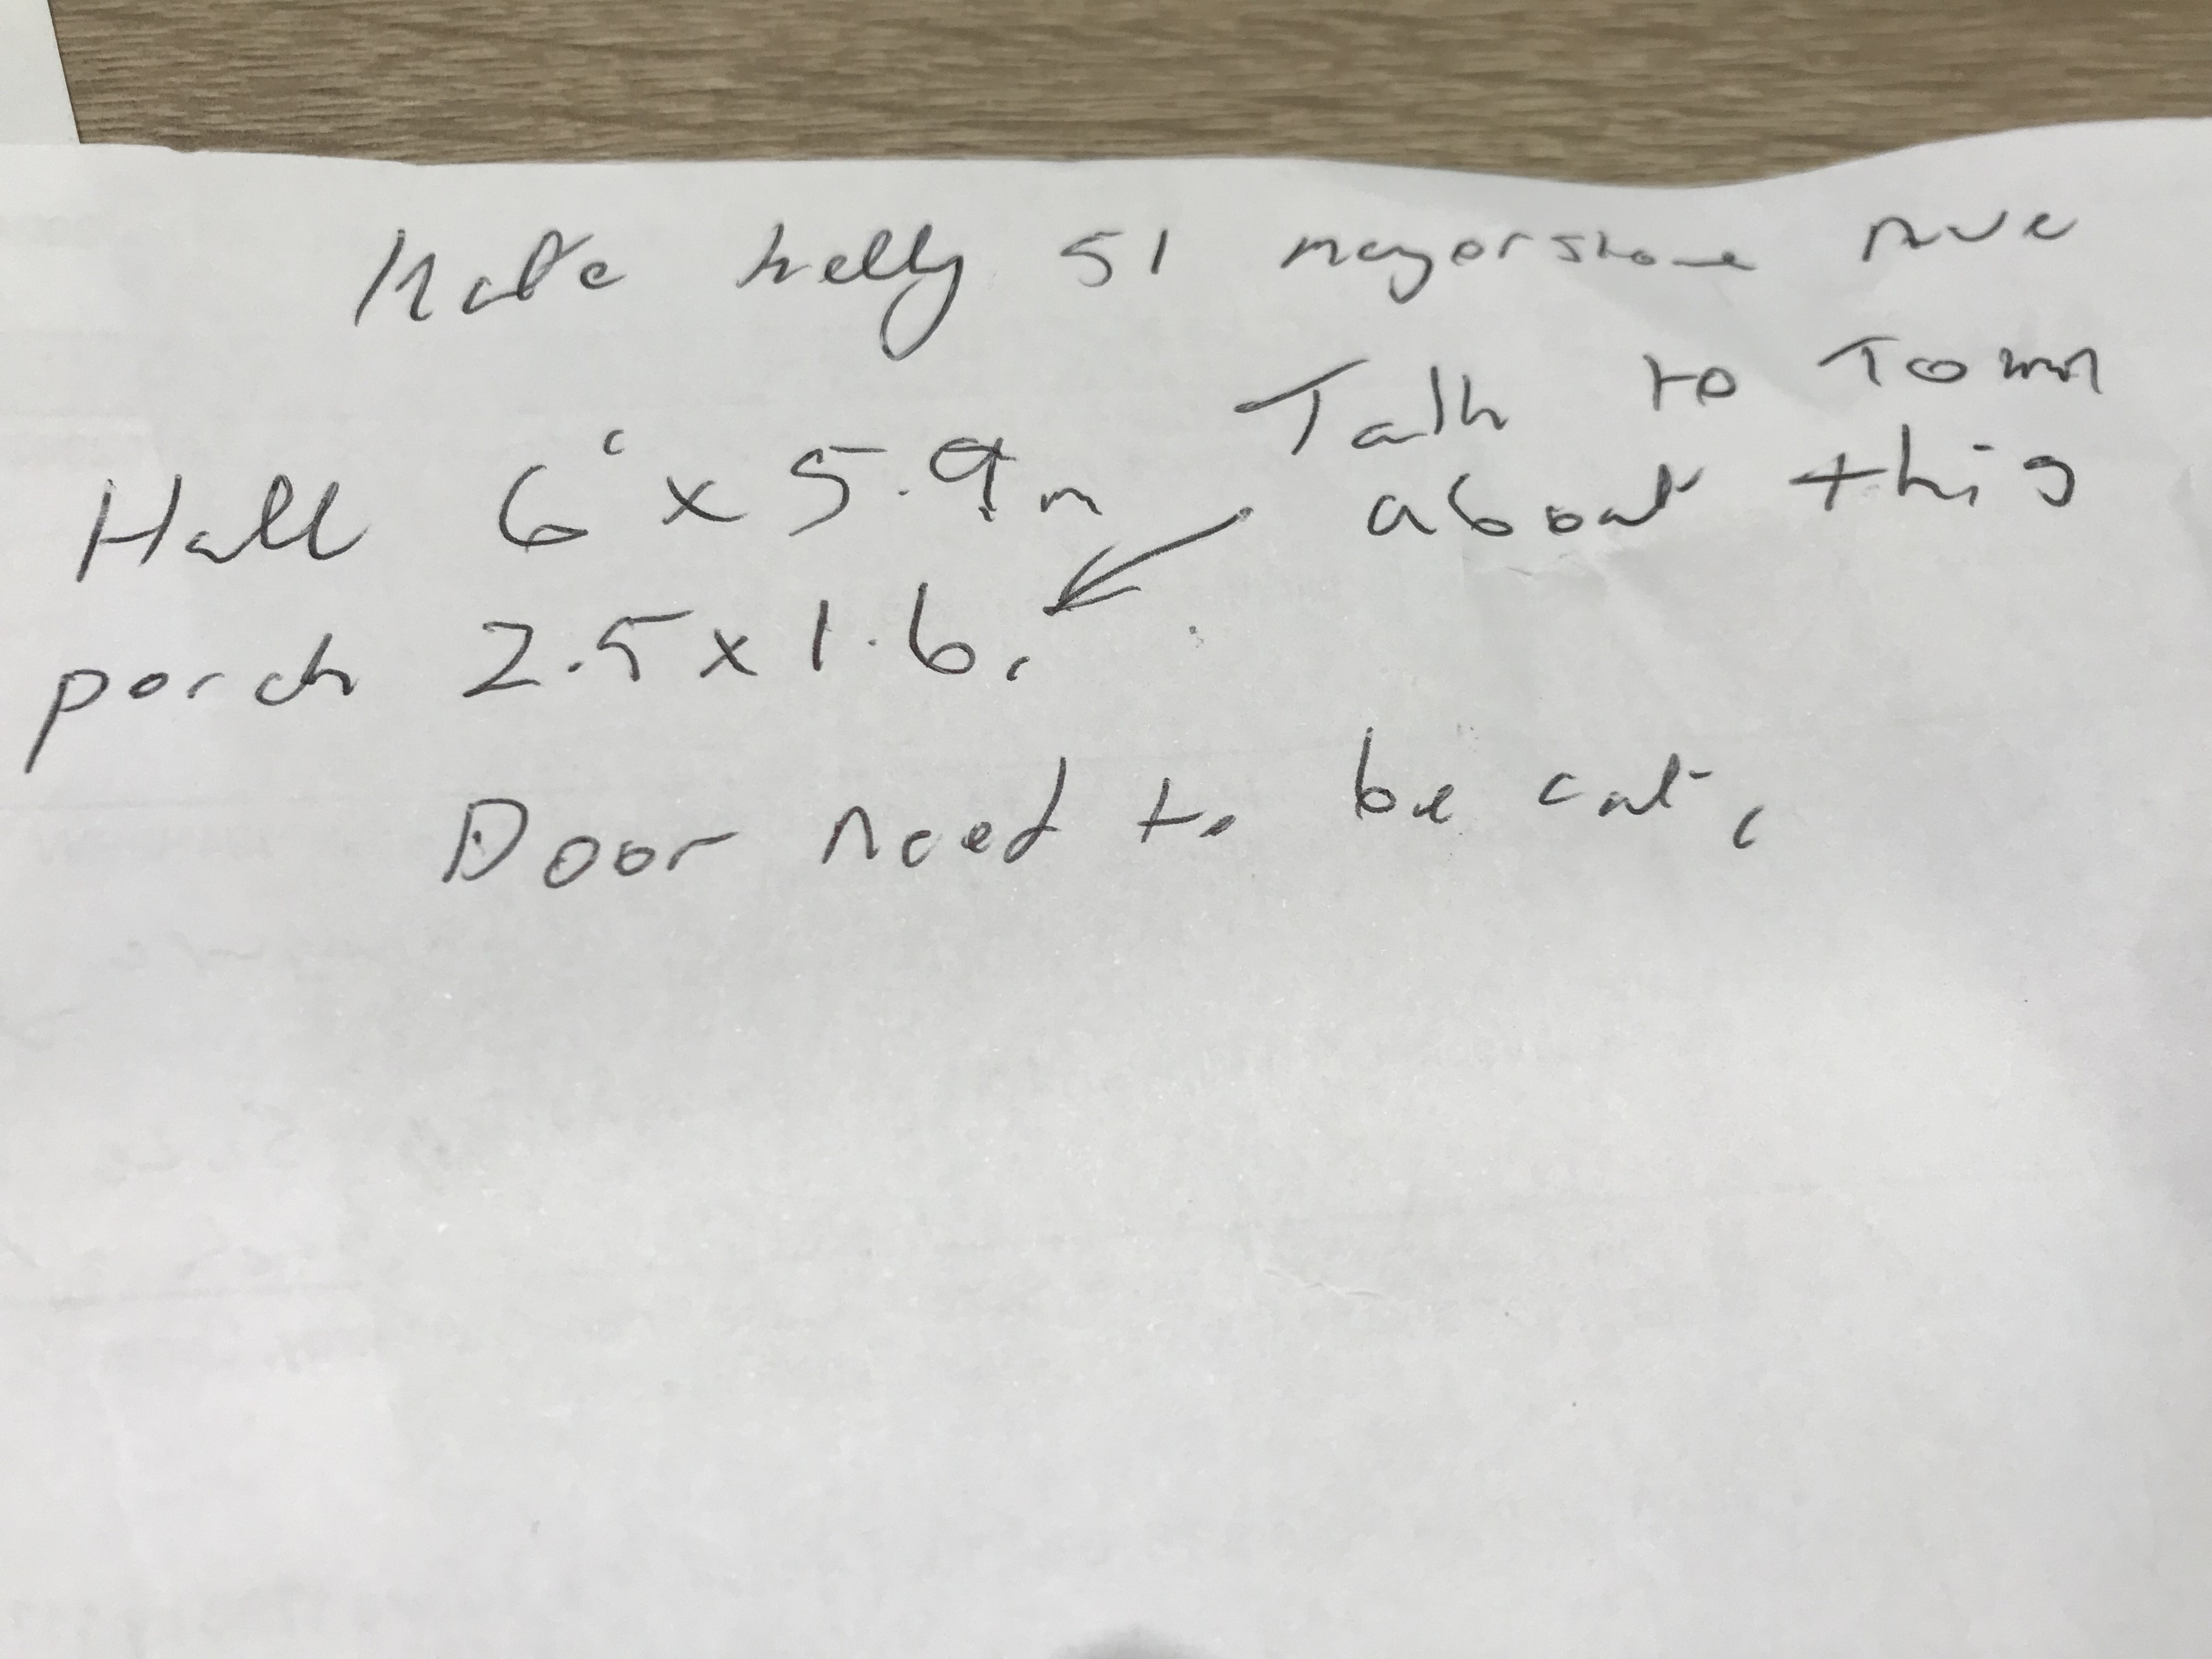 Kate Kelly 51 mayorstone Ave
Talk to Town
about this
Hall 6' x 5.9m
porch 2.5 x 1.6.
Door need to be cut,